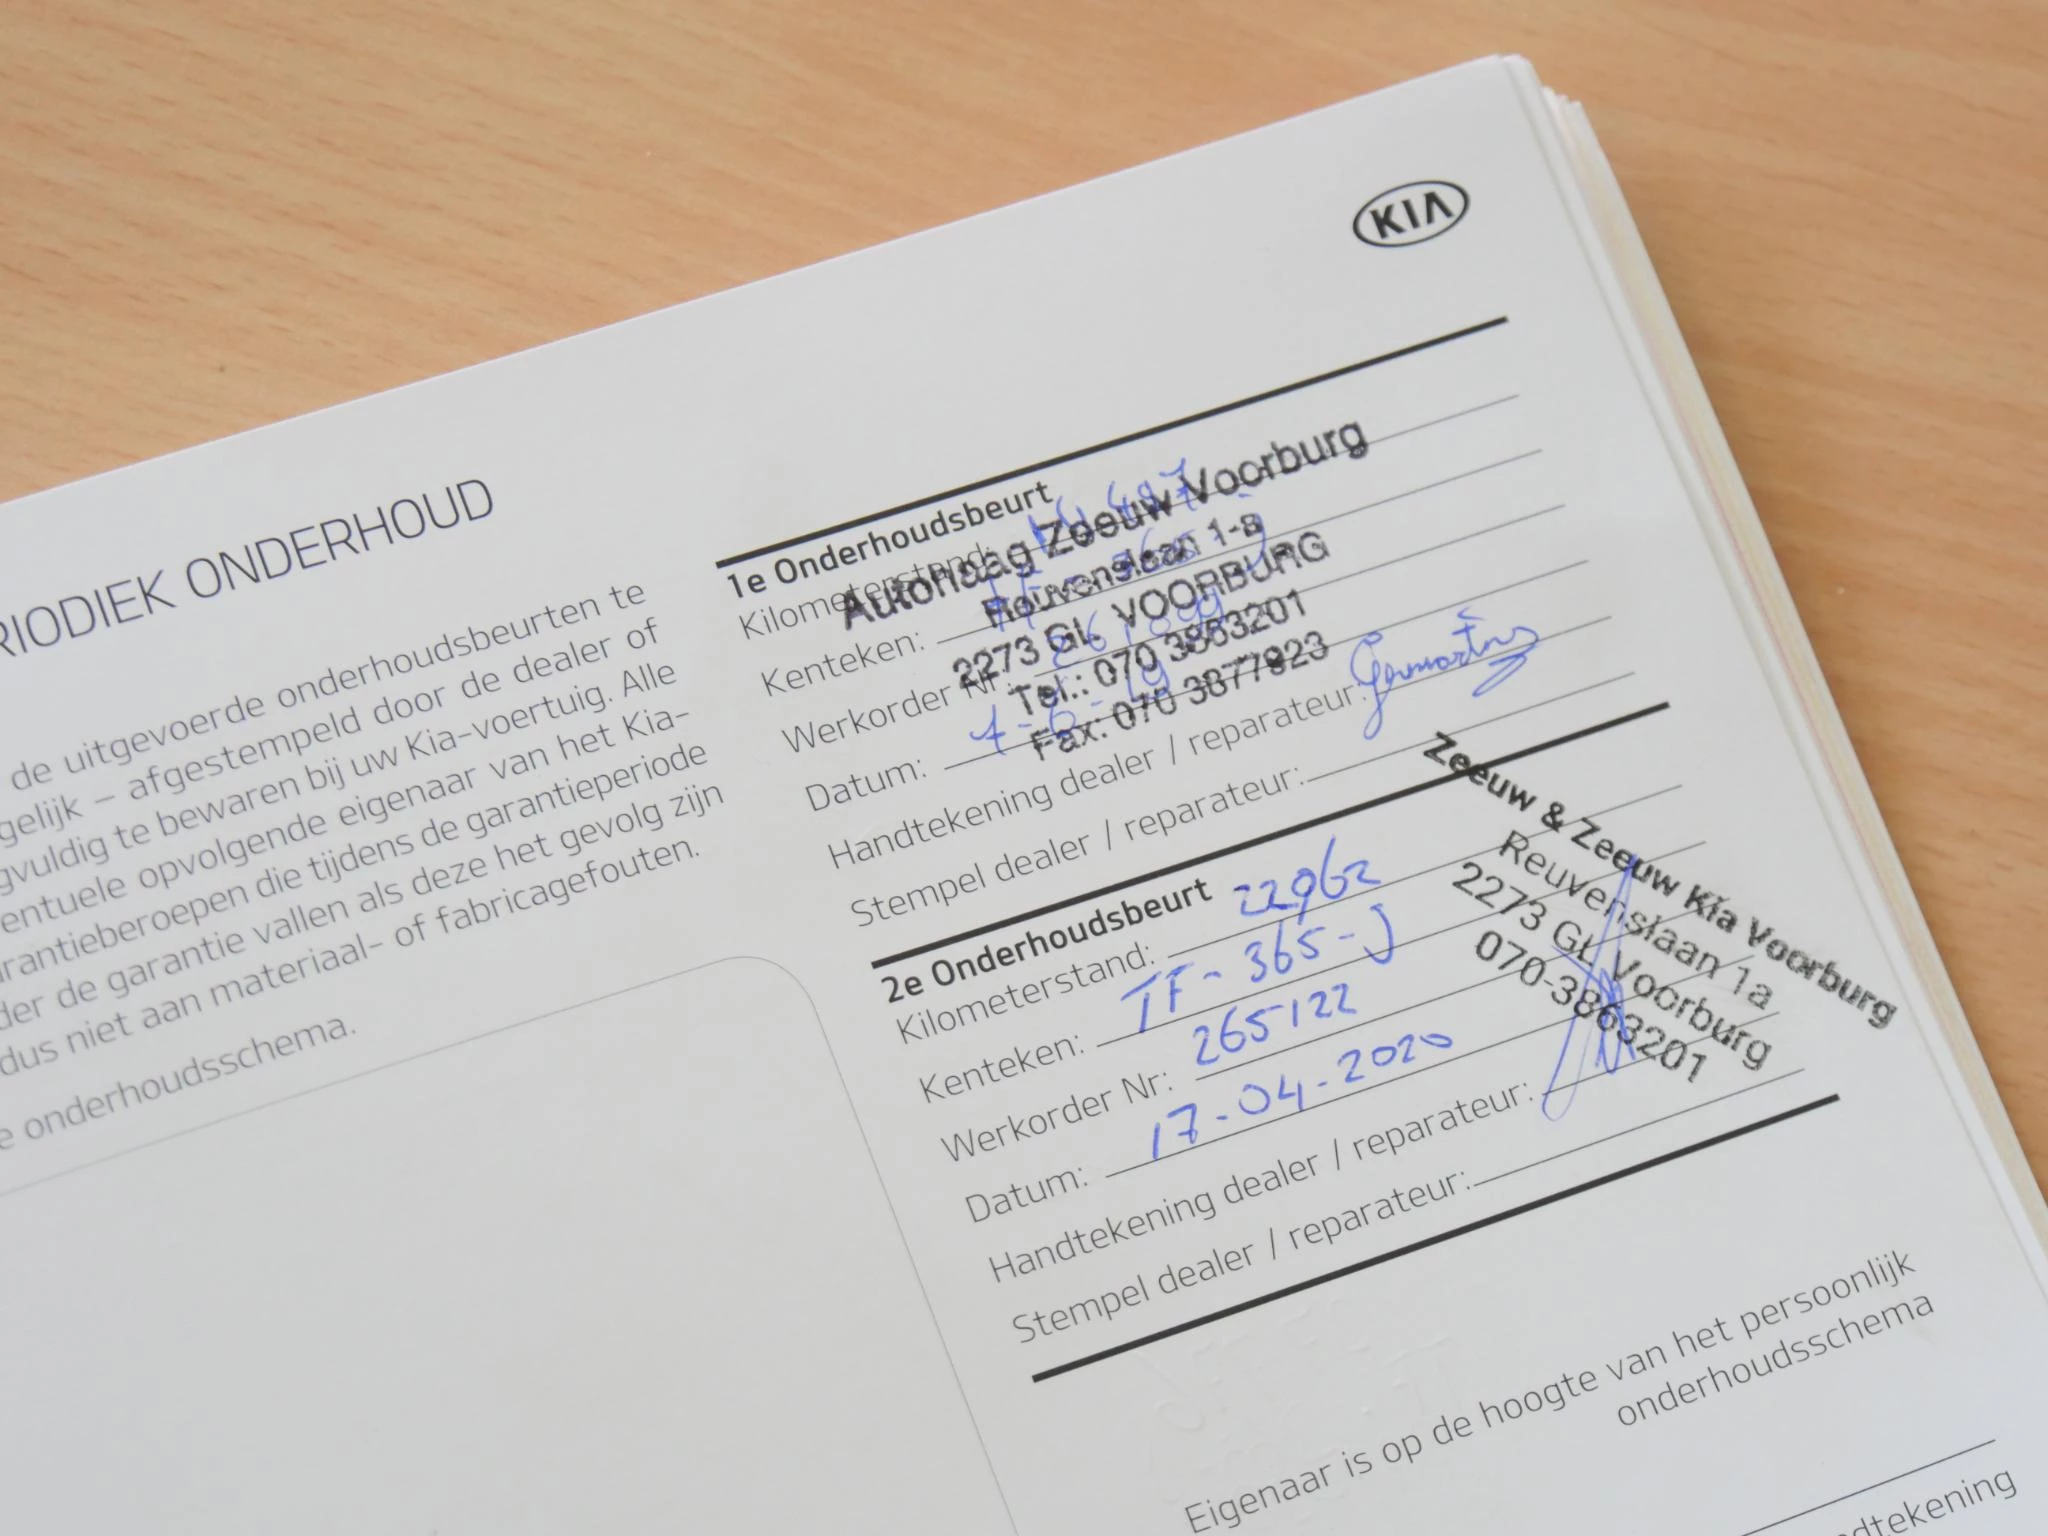 KIA
RIODIEK ONDERHOUD
de uitgevoerde onderhoudsbeurten te
gelijk – afgestempeld door de dealer of
gvuldig te bewaren bij uw Kia-voertuig. Alle
entuele opvolgende eigenaar van het Kia-
arantieberoepen die tijdens de garantieperiode
der de garantie vallen als deze het gevolg zijn
dus niet aan materiaal- of fabricagefouten.
e onderhoudsschema.
1e Onderhoudsbeurt
Kilometerstand:
Kenteken:
Werkorder Nr:
Datum:
Handtekening dealer / reparateur:
Stempel dealer / reparateur:
Autohaag Zeeuw Voorburg
Reuvenslaan 1-a
2273 GL VOORBURG
Tel.: 070 3863201
Fax: 070 3877923
2e Onderhoudsbeurt
Kilometerstand: 22962
Kenteken: TF-365-J
Werkorder Nr: 265122
Datum: 17-04-2020
Handtekening dealer / reparateur:
Stempel dealer / reparateur:
Zeeuw & Zeeuw Kia Voorburg
Reuvenslaan 1a
2273 GL Voorburg
070-3863201
Eigenaar is op de hoogte van het persoonlijk
onderhoudsschema
dtekening